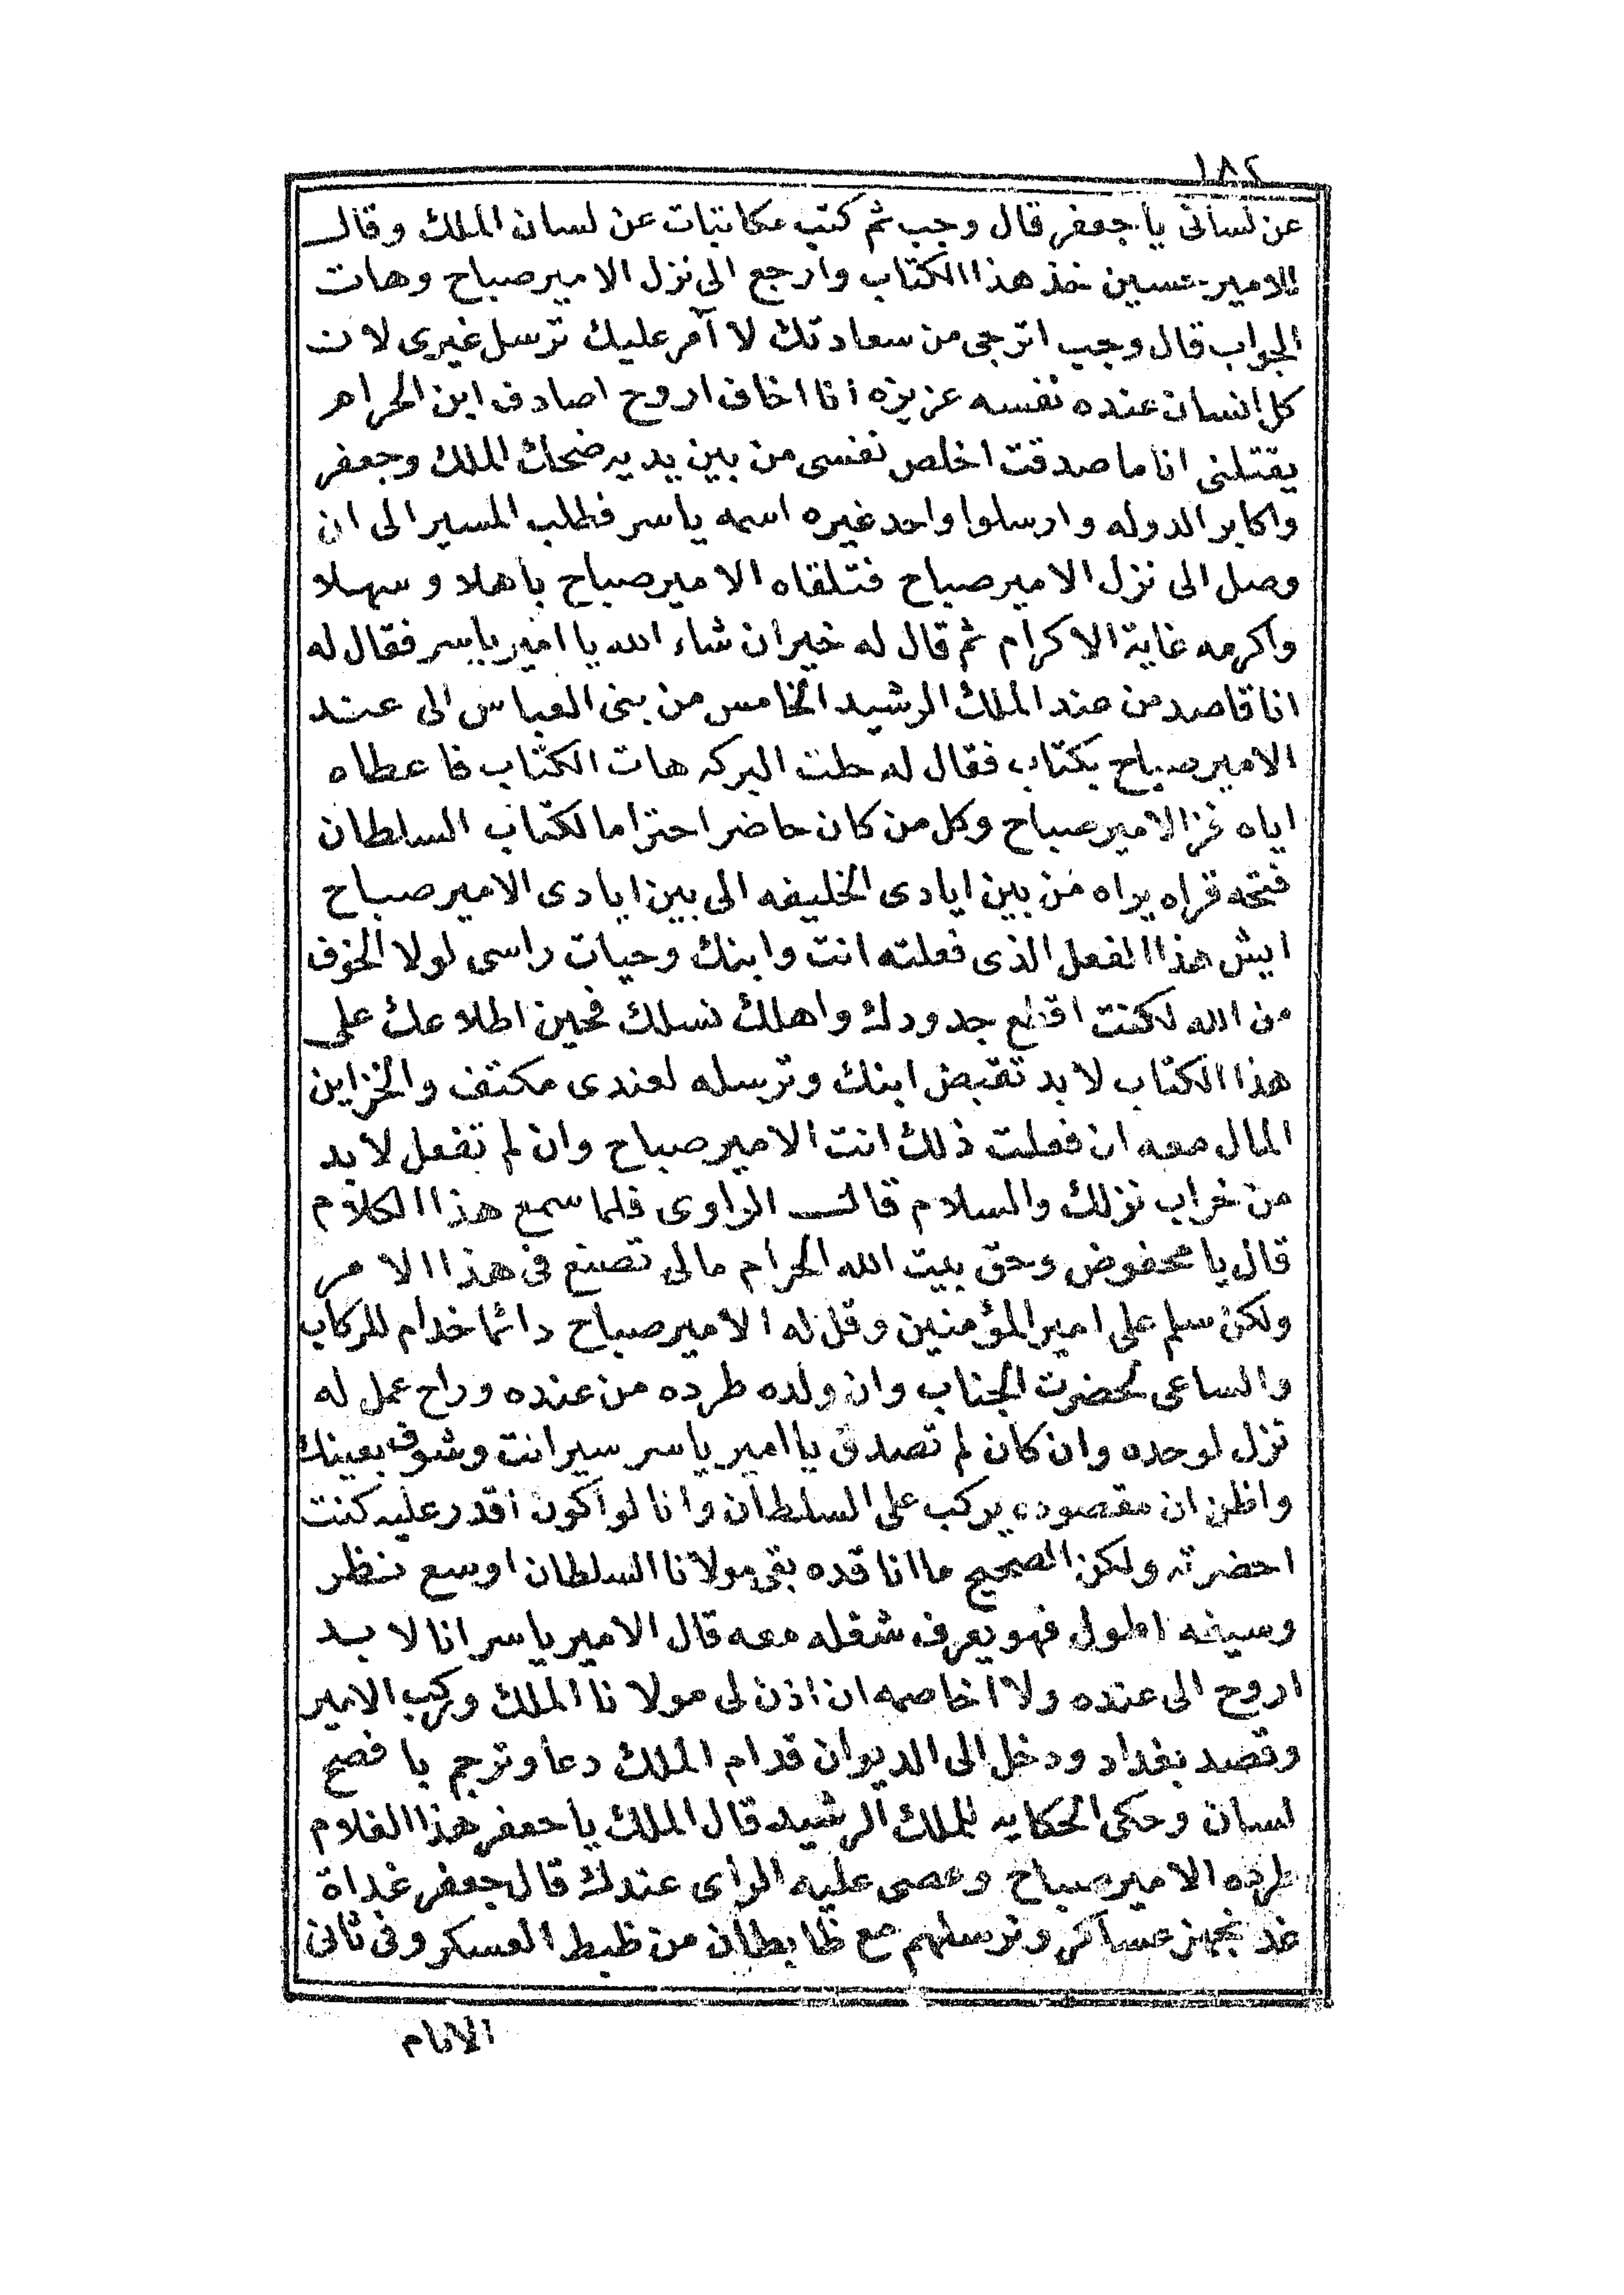 ١٨٢
عن لسانى يا جعفر قال وجب ثم كتب مكاتبات عن لسان الملك وقال
للامير حسين خذ هذا الكتاب وارجع الى نزل الامير صباح وهات
الجواب قال وجب اترجى من سعادتك لا آمر عليك ترسل غيرى لان
كل انسان عنده نفسه عزيزه انا اخاف اروح اصادف ابن الحرام
يقتلنى انا ما صدقت اخلص نفسى من بين يديه ضحك الملك وجعفر
واكابر الدوله وارسلوا واحد غيره اسمه ياسر فطلب المسير الى ان
وصل الى نزل الامير صباح فتلقاه الامير صباح باهلا وسهلا
واكرمه غاية الاكرام ثم قال له خير ان شاء الله يا امير ياسر فقال له
انا قاصد من عند الملك الرشيد الخامس من بنى العباس الى عند
الامير صباح بكتاب فقال له حلت البركه هات الكتاب فاعطاه
اياه فز الامير صباح وكل من كان حاضر احتراما لكتاب السلطان
فتحه قراه يراه من بين ايادى الخليفه الى بين ايادى الامير صباح
ايش هذا الفعل الذى فعلته انت وابنك وحيات راسى لولا الخوف
من الله لكنت اقطع جدودك واهلك نسلك فحين اطلاعك على
هذا الكتاب لابد تقبض ابنك وترسله لعندى مكتف والخزاين
المال معه ان فعلت ذلك انت الامير صباح وان لم تفعل لابد
من خراب نزلك والسلام قال الراوى فلما سمع هذا الكلام
قال يا محفوض وحق بيت الله الحرام مالى تصنع فى هذا الامر
ولكن سلم على امير المؤمنين وقل له الامير صباح دائما خدام للركاب
والساعى لحضرت الجناب وان ولده طرده من عنده وراح عمل له
نزل لوحده وان كان لم تصدق يا امير ياسر سير انت وشوف بعينك
واظن ان مقصوده يركب على السلطان وانا لو اكون اقدر عليه كنت
احضرته ولكن الصحيح ما انا قده بقى مولانا السلطان اوسع نظر
وسيفه اطول فهو يعرف شغله معه قال الامير ياسر انا لا بد
اروح الى عنده ولا اخاصمه ان اذن لى مولانا الملك وركب الامير
وقصد بغداد ودخل الى الديوان قدام الملك دعا وترجم بافصح
لسان وحكى الحكايه للملك الرشيد قال الملك يا جعفر هذا الغلام
طرده الامير صباح وعصى عليه الراى عندك قال جعفر غداة
غد نجهز عساكر ونرسلهم مع ظابطان من ظبط العسكر وفى ثانى
الايام